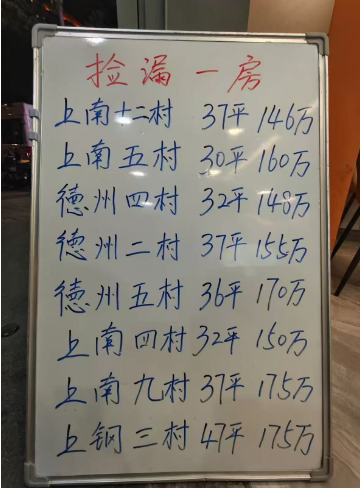 捡漏一房
上南十二村 37平 146万
上南五村 30平 160万
德州四村 32平 148万
德州二村 37平 155万
德州五村 36平 170万
上南四村 32平 150万
上南九村 37平 175万
上钢三村 47平 175万